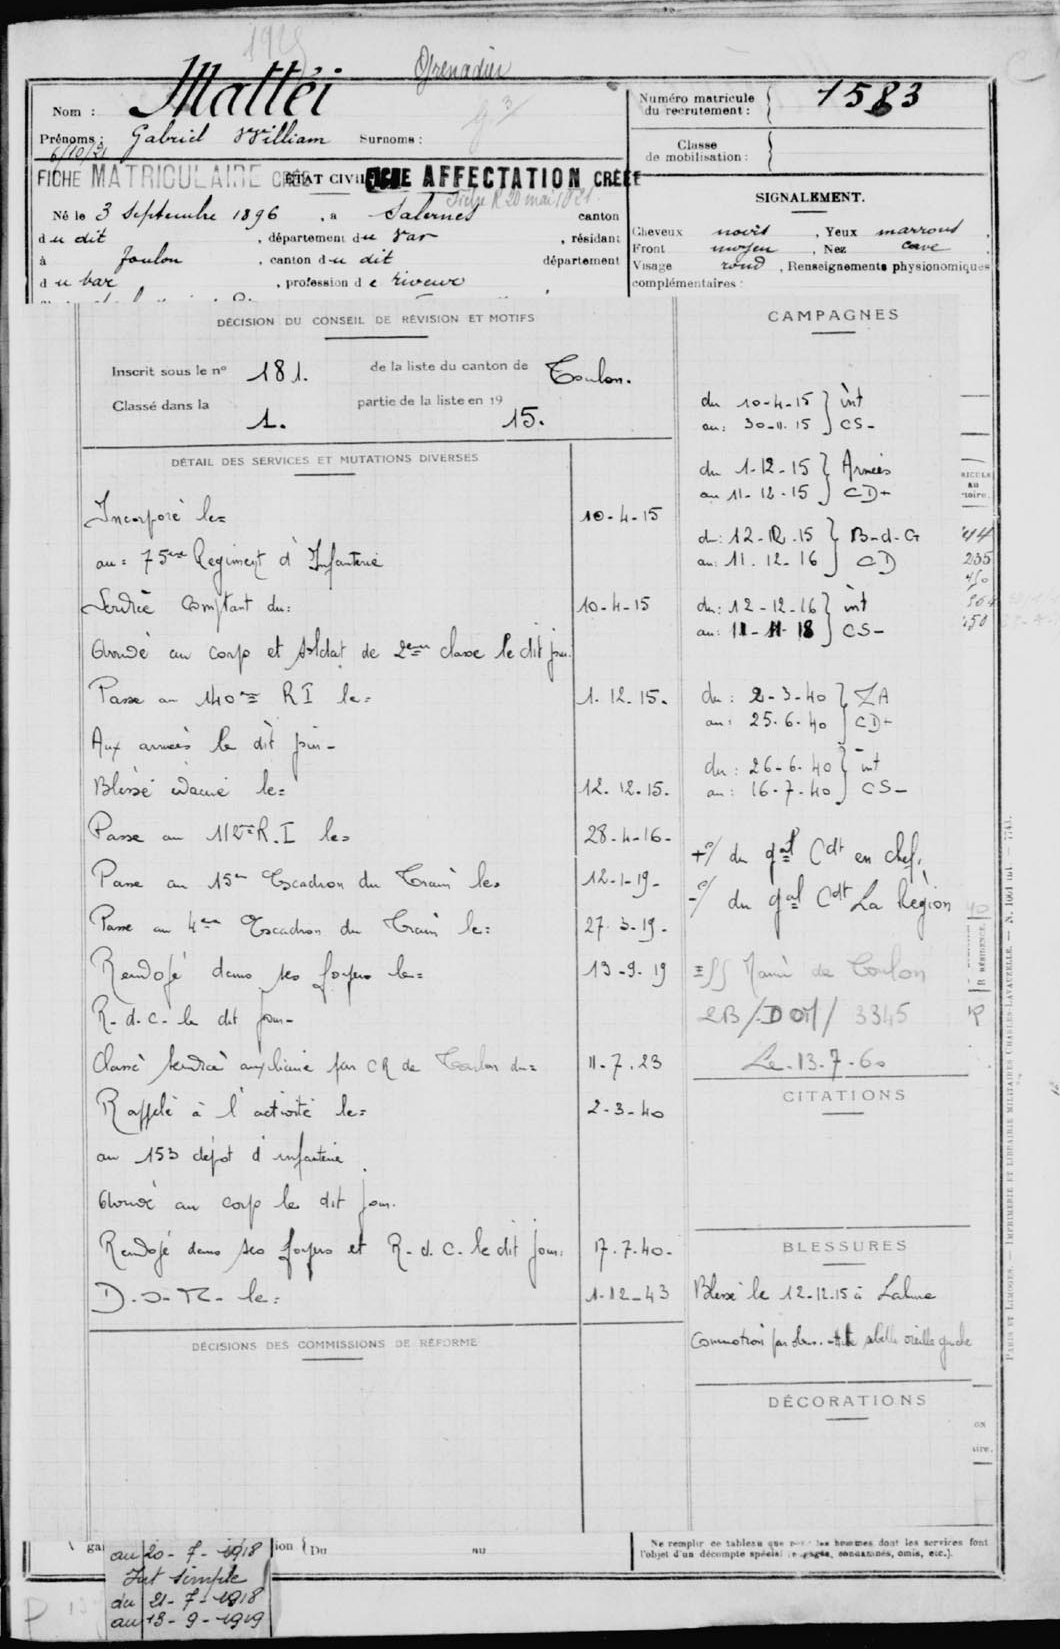 1925
Grenadier
Nom : Mattéi
Prénoms : Gabriel William Surnoms :
6/10/21
FICHE MATRICULAIRE CRÉÉE
ÉTAT CIVIL
FICHE AFFECTATION CRÉÉE
Né le 3 Septembre 1896, à Salernes canton
du dit, département du Var, résidant
à Toulon, canton du dit département
du Var, profession de riveur
Numéro matricule
du recrutement : 1583
Classe
de mobilisation :
SIGNALEMENT.
Cheveux noirs, Yeux marrons,
Front moyen, Nez cave
Visage rond, Renseignements physionomiques
complémentaires :
DÉCISION DU CONSEIL DE RÉVISION ET MOTIFS
Inscrit sous le n° 181. de la liste du canton de Toulon.
Classé dans la 1. partie de la liste en 19 15.
DÉTAIL DES SERVICES ET MUTATIONS DIVERSES
Incorporé le= 10-4-15
au= 75eme Regiment d'Infanterie
Service Comptant du: 10-4-15
au corps et soldat de 2eme classe le dit jour.
Passe au 140me RI le= 1.12.15.
Aux armées le dit jour-
Blessé évacué le= 12.12.15.
Passe au 112eme R.I le= 28-4-16-
Passe au 15em Escadron du Train le= 12-1-19-
Passe au 4em Escadron du Train le= 27-3-19-
Renvoyé dans ses foyers le= 13-9-19
R-d-c-le dit jour-
Classé service auxiliaire par CR de Toulon du= 11-7.23
Rappelé à l'activité le= 2-3-40
au 153 dépot d'infanterie
au corps le dit jour.
Renvoyé dans ses foyers et R-d.c-le dit jour. 17.7.40-
le: 1-12-43
DÉCISIONS DES COMMISSIONS DE RÉFORME
CAMPAGNES
du 10-4-15 } int
au: 30-11.15 } CS-
du 1-12-15 } Armées
au 11-12-15 } CD+
du: 12-12-15 } B-d-G
au: 11.12-16 } CD
du: 12-12-16 } int
au: 11-11-18 } CS-
du: 2-3-40 } ZA
au: 25.6.40 } CD+
du: 26-6-40 } int
au: 16-7-40 } CS-
+°/ du gal Cdt en chef.
-°/ du gal Cdt La Région
Mairie de Toulon
3345
Le 13.7-60
CITATIONS
BLESSURES
Blessé le 12-12.15 à
Commotion par obus. oreille gauche
DÉCORATIONS
au 20-7-1918
Int simple
du 21-7-1918
au 13-9-1919
Du au
Ne remplir ce tableau que pour les hommes dont les services font
l'objet d'un décompte spécial (engagés, condamnés, omis, etc.).
PARIS ET LIMOGES. — IMPRIMERIE ET LIBRAIRIE MILITAIRES CHARLES-LAVAUZELLE.